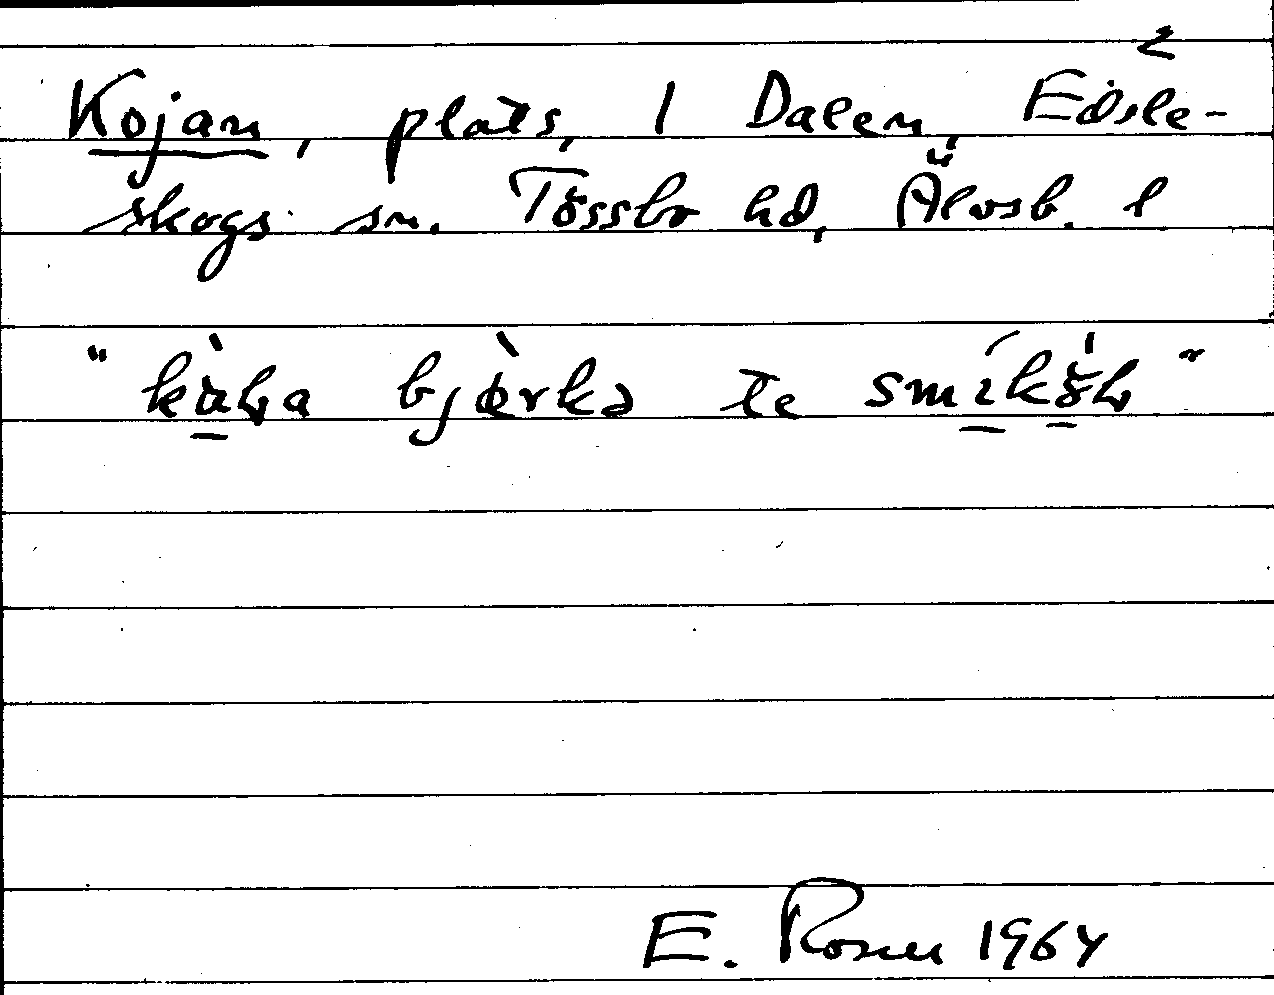 2
Kojan, plats, 1 Dalen, Edsle-
skogs sn. Tössbo hd, Älvsb. l
"kàɫa bjèrkə te smíkö̀ɫ"
E. Rosell 1964